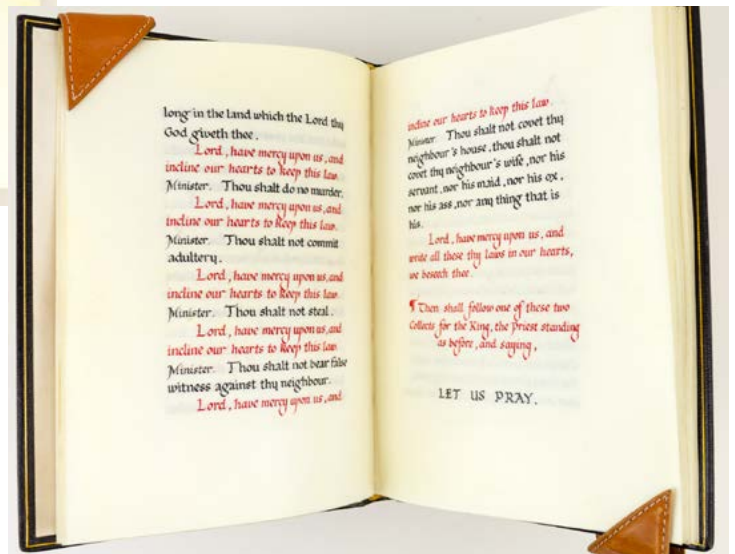 long in the land which the Lord thy
God giveth thee.
Lord, have mercy upon us, and
incline our hearts to keep this law.
Minister. Thou shalt do no murder.
Lord, have mercy upon us, and
incline our hearts to keep this law.
Minister. Thou shalt not commit
adultery.
Lord, have mercy upon us, and
incline our hearts to keep this law.
Minister. Thou shalt not steal.
Lord, have mercy upon us, and
incline our hearts to keep this law.
Minister. Thou shalt not bear false
witness against thy neighbour.
Lord, have mercy upon us, and
incline our hearts to keep this law.
Minister. Thou shalt not covet thy
neighbour's house, thou shalt not
covet thy neighbour's wife, nor his
servant, nor his maid, nor his ox,
nor his ass, nor any thing that is
his.
Lord, have mercy upon us, and
write all these thy laws in our hearts,
we beseech thee.
¶ Then shall follow one of these two
Collects for the King, the Priest standing
as before, and saying,
LET US PRAY.